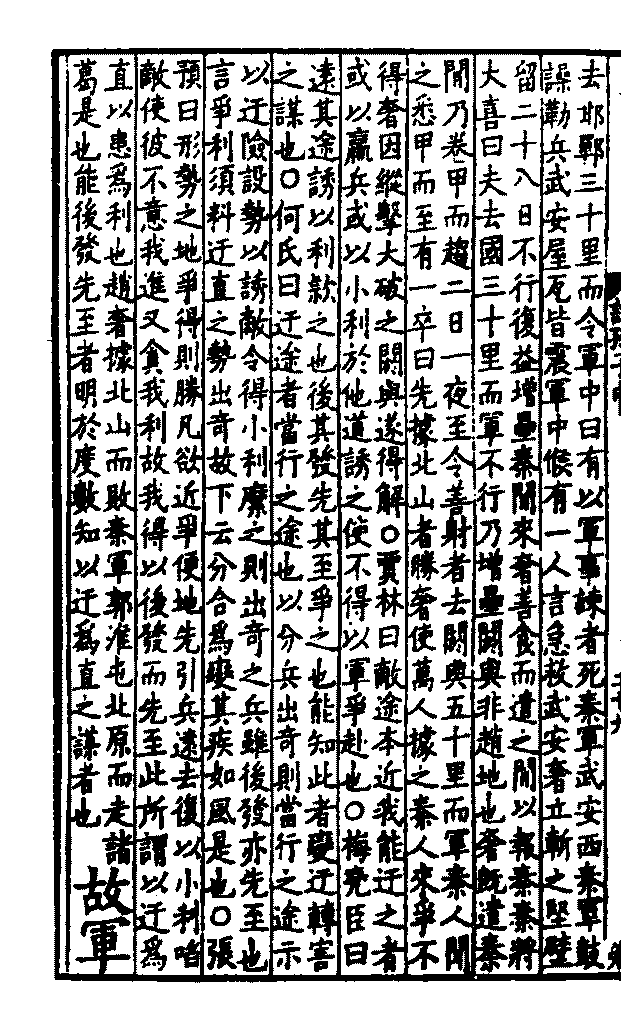 去邯鄲三十里而令軍中曰有以軍事諫者死秦軍武安西秦軍鼓
譟勒兵武安屋瓦皆震軍中候有一人言急救武安奢立斬之堅壁
留二十八日不行復益增壘秦間來奢善食而遣之間以報秦秦將
大喜曰夫去國三十里而軍不行乃增壘閼與非趙地也奢既遣秦
間乃卷甲而趨二日一夜至令善射者去閼與五十里而軍秦人聞
之悉甲而至有一卒曰先據北山者勝奢使萬人據之秦人來爭不
得奢因縱擊大破之閼與遂得解○賈林曰敵途本近我能迂之者
或以羸兵或以小利於他道誘之使不得以軍爭赴也○梅堯臣曰
遠其途誘以利款之也後其發先其至爭之也能知此者變迂轉害
之謀也○何氏曰迂途者當行之途也以分兵出奇則當行之途示
以迂險設勢以誘敵令得小利縻之則出奇之兵雖後發亦先至也
言爭利須料迂直之勢出奇故下云分合爲變其疾如風是也○張
預曰形勢之地爭得則勝凡欲近爭便地先引兵遠去復以小利啗
敵使彼不意我進又貪我利故我得以後發而先至此所謂以迂爲
直以患爲利也趙奢據北山而敗秦軍郭淮屯北原而走諸
葛是也能後發先至者明於度數知以迂爲直之謀者也
故軍